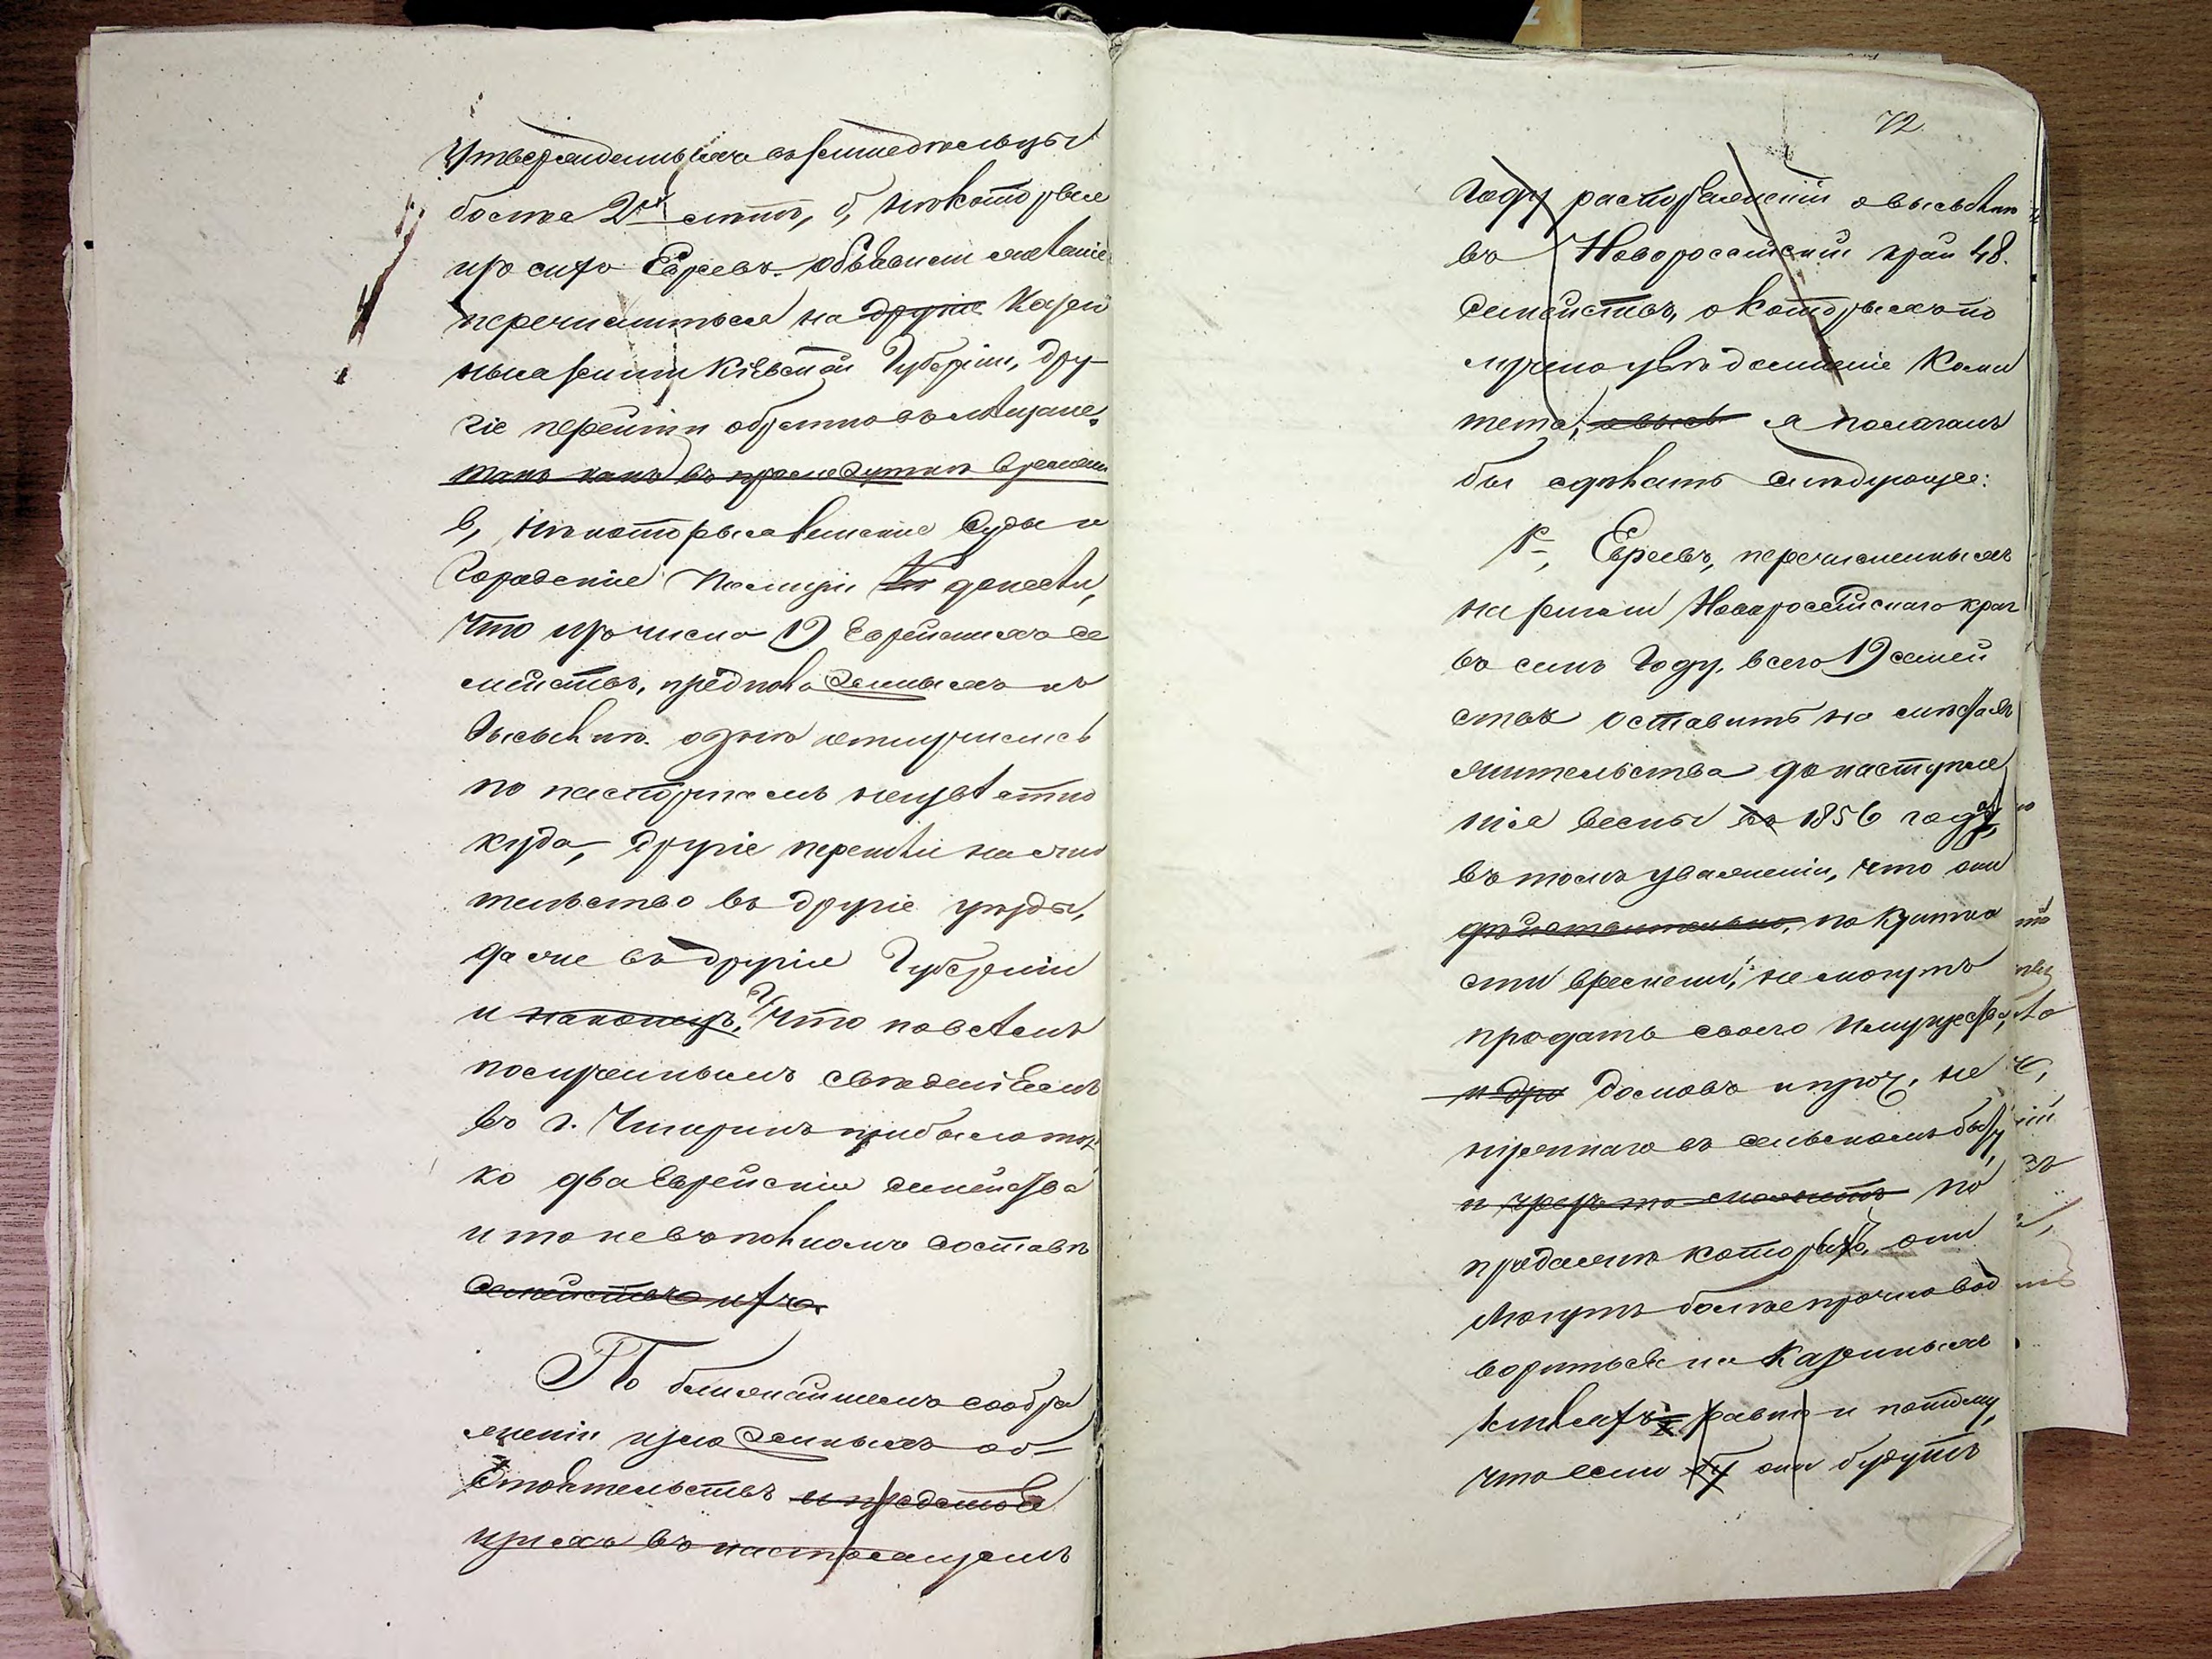 утвержденныхъ въ земледельцы
более 2хъ летъ, б, некоторые
изъ сихъ Евреевъ объявили желаніе
перечислиться на другіе Казен
ныя земли Кіевской Губерніи, дру-
гіе перейти обратно въ мещане,
такъ какъ въ промежутке времени
в, некоторыя земскіе Суды и
Городскіе Полиціи донесли,
что изъ числа 19 Еврейскихъ се
мействъ, предположенныхъ къ
высылке одни отлучились
по паспортамъ неизвестно
куда, другіе перешли на жи
тельство въ другіе уезды,
даже въ другія Губерніи
и наконецъ, что по всемъ
полученнымъ сведеніямъ
въ г. Чигиринъ прибыло толь
ко два Еврейскія семейства
и то не въ полномъ составе
семействъ ихъ.
По ближайшемъ сообра
женіи изложенныхъ об-
стоятельствъ и представ
ихъ въ настоящемъ
72
году распоряженій о высылке
въ Новороссійскій край 48
Семействъ, о которыхъ по
лучено уведомленіе Коми
тета, о высы я полагалъ
бы сделать следующее:
1е, Евреевъ, перечисленныхъ
на земли Новороссійскаго края
въ семъ году, всего 19 семей
ствъ оставить на местахъ
жительства до наступле
нія весны 1856 года,
въ томъ уваженіи, что они
действительно, по кратко
сти времени, не могутъ
продать своего имущества,
и дро домовъ и проч. не
нужнаго въ сельскомъ быту,
и чрезъ то сможетъ по
продаже котораго, они
могутъ более прочно вод
вориться на Казенныхъ
земляхъ равно и потому,
что если они будутъ